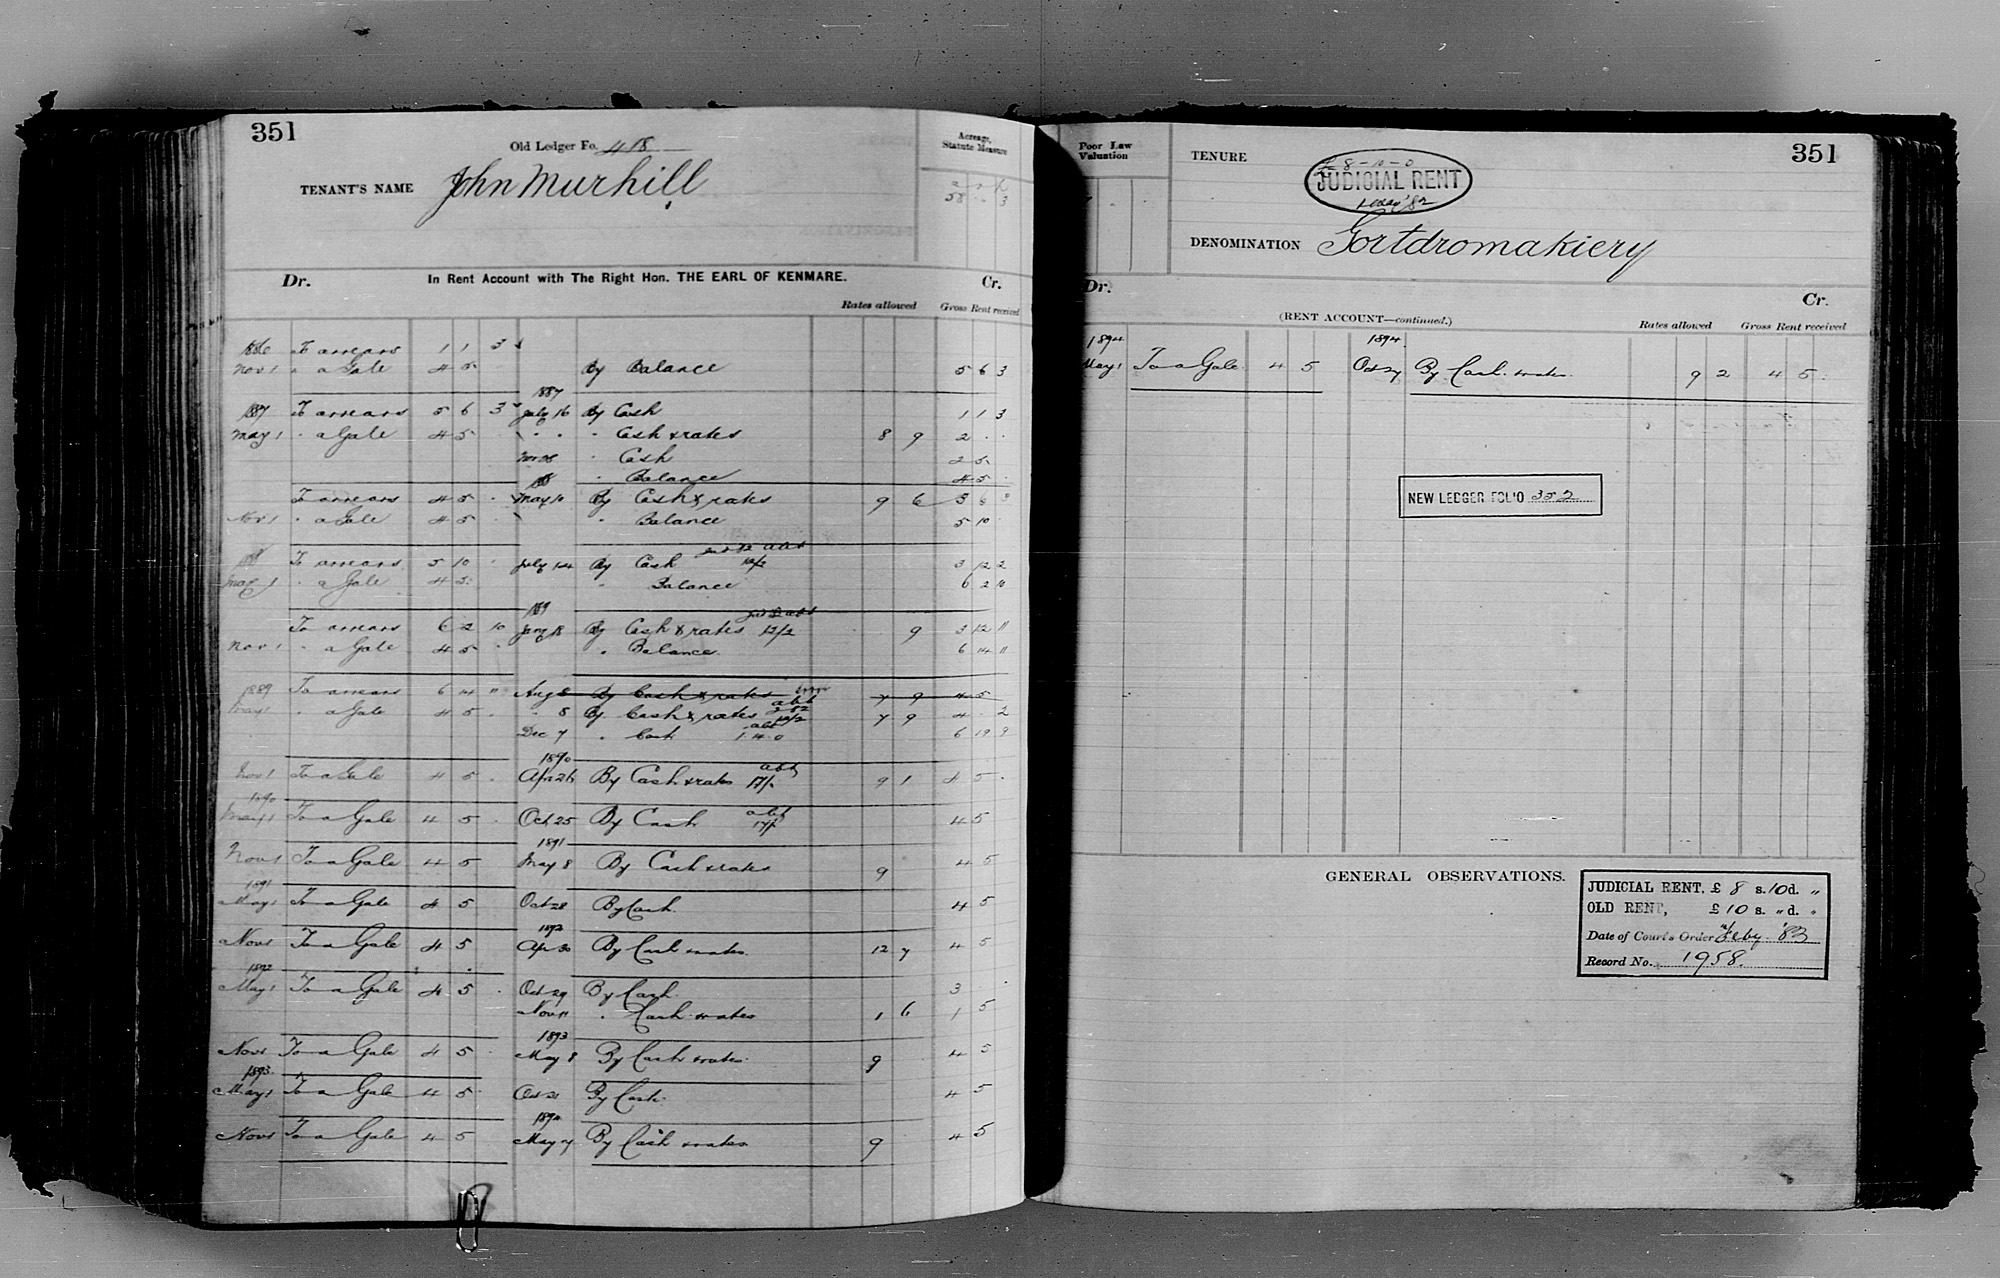 351
Old Ledger Fo. 418
Acreage, Statute Measure
TENANT'S NAME John Murhill
58 " 3
Dr. In Rent Account with The Right Hon. THE EARL OF KENMARE. Cr.
Rates allowed Gross Rent received
1886 To arrears 1 1 3
Nov 1 " a Gale 4 5 By Balance 5 6 3
1887
1887 To arrears 5 6 3 July 16 By Cash 1 1 3
May 1 " a Gale 4 5 " " " Cash & rates 8 9 2 " "
Nov 28 " Cash 2 5
" Balance 4 5
To arrears 4 5 May 10 By Cash & rates 9 6
Nov 1 " a Gale 4 5 " Balance 5 10
To arrears 5 10 July 14 By Cash 3 12 2
May 1 " a Gale 4 5 " Balance 6 2 10
To arrears 6 2 10 Jany 18 By Cash & rates 12/2 9 3 12 11
Nov 1 " a Gale 4 5 " Balance 6 14 11
1889 To arrears 6 14 11 Aug 8 By Cash & rates error 7 9 4 5
May 1 " a Gale 4 5 " 8 By Cash & rates abt 7 9 4 " 2
Dec 7 " Cash abt 1.14.0 6 19 9
1890
Nov 1 To a Gale 4 5 Apr 26 By Cash & rates abt 17/- 9 1 4 5
1890
May 1 To a Gale 4 5 Oct 25 By Cash abt 17/- 4 5
1891
Nov 1 To a Gale 4 5 May 8 By Cash & rates 9 4 5
1891
May 1 To a Gale 4 5 Oct 28 By Cash 4 5
1892
Nov 1 To a Gale 4 5 Apr 30 By Cash & rates 12 7 4 5
1892
May 1 To a Gale 4 5 Oct 29 By Cash 3
Nov 11 " Cash & rates 1 6 1 5
1893
Nov 1 To a Gale 4 5 May 8 By Cash & rates 9 4 5
1893
May 1 To a Gale 4 5 Oct 21 By Cash 4 5
1894
Nov 1 To a Gale 4 5 May 7 By Cash & rates 9 4 5
Poor Law Valuation
TENURE
£8-10-0
JUDICIAL RENT
1 May '82
351
DENOMINATION Gortdromakiery
Dr. Cr.
(RENT ACCOUNT—continued.)
Rates allowed Gross Rent received
1894 1894
May 1 To a Gale 4 5 Oct 27 By Cash & rates 9 2 4 5
NEW LEDGER FOLIO 352
GENERAL OBSERVATIONS.
JUDICIAL RENT, £ 8 s. 10 d. "
OLD RENT, £ 10 s. " d. "
Date of Court's Order Feby '83
Record No. 1958.